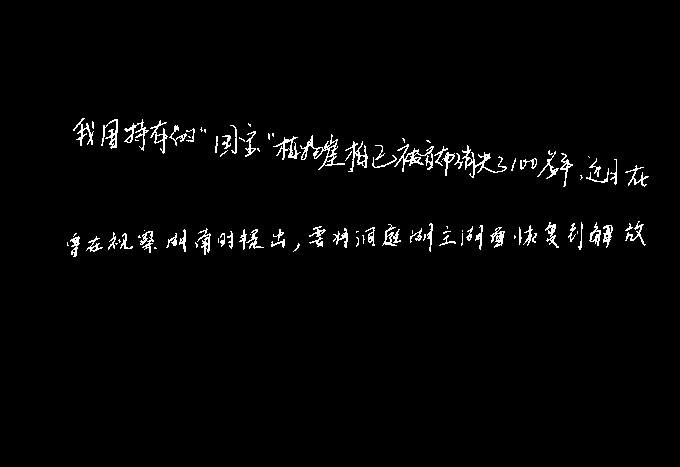 我国特有的“国宝”植物崖柏已被宣布消失了100多年,近日在
曾在视察湖南时提出,要将洞庭湖主湖面恢复到解放